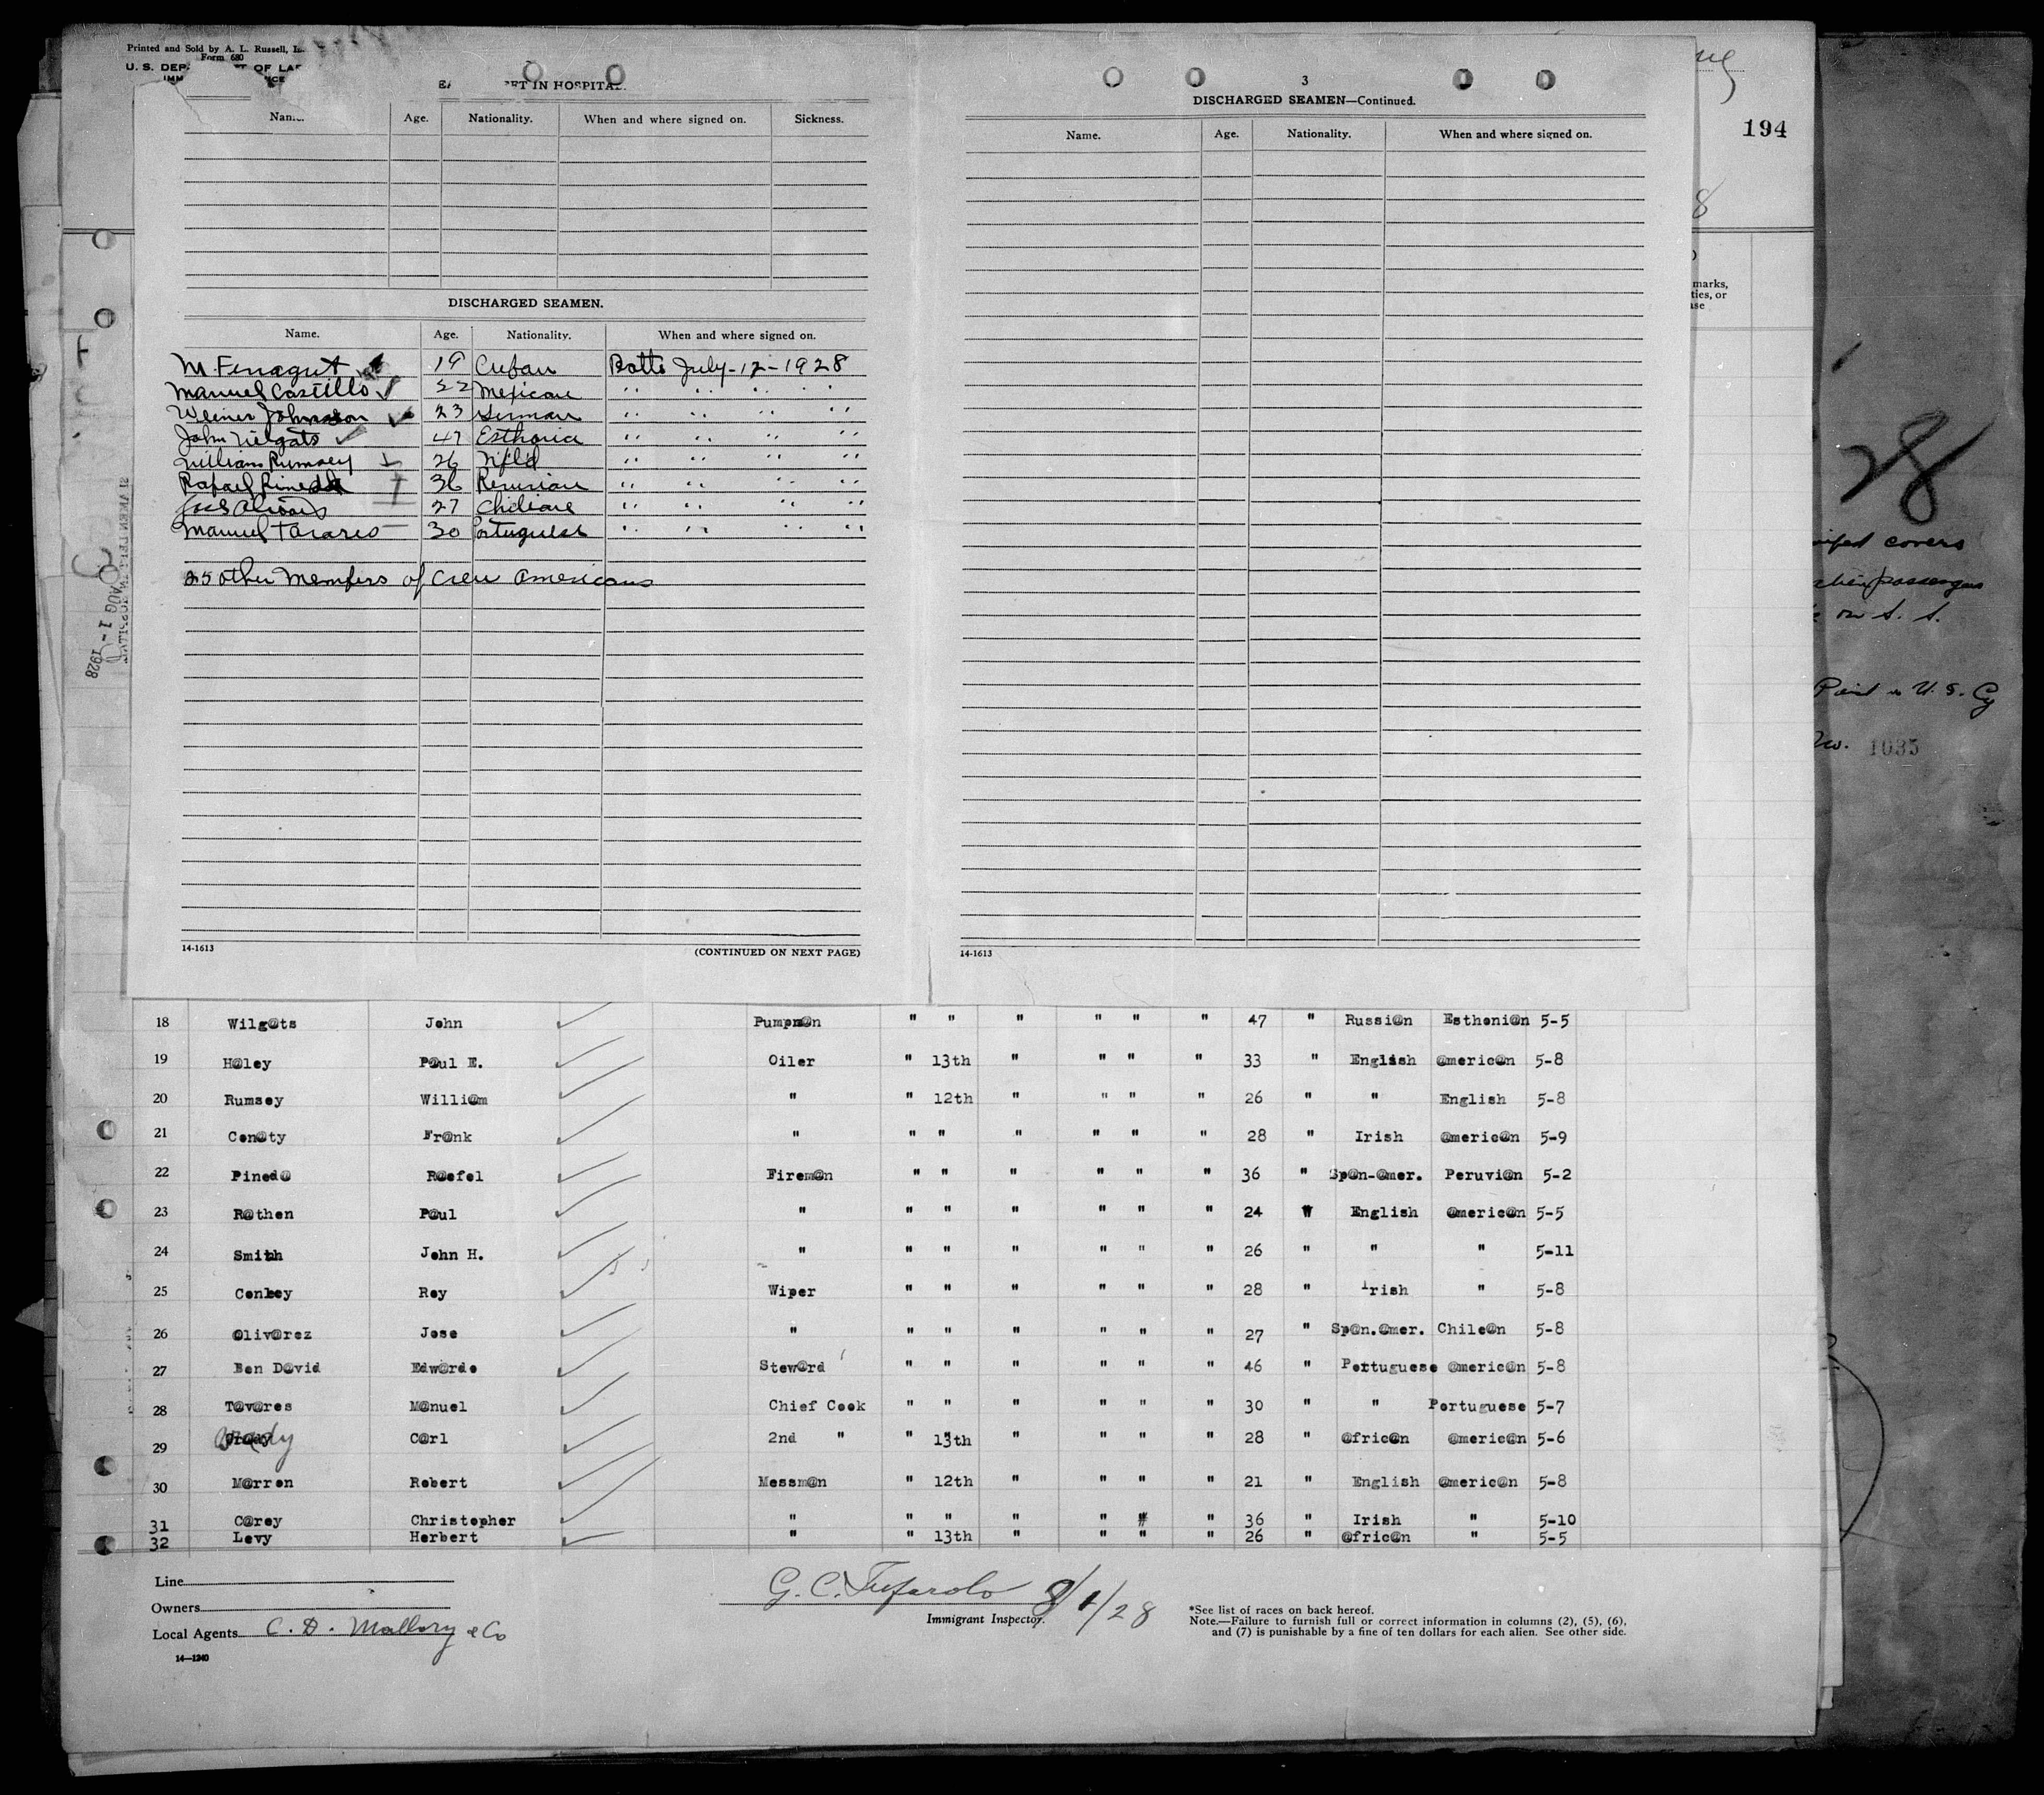 Printed and Sold by A. L. Russell,
Form 680
U. S. DEP OF LA
IN HOSPITAL.
Name. Age. Nationality. When and where signed on. Sickness.
DISCHARGED SEAMEN.
Name. Age. Nationality. When and where signed on.
M. Ferragut 19 Cuban Balto July-12-1928
Manuel Castillo ✓ 22 Mexican " " " "
Weiner Johnson ✓ 23 German " " " "
John Wilgats ✓ 47 Esthonia " " " "
William Rumsey 26 Nfl'd " " " "
Rafael Pineda 36 Peruvian " " " "
27 Chileane " " " "
Manuel Tavares 30 Portuguese " " " "
25 other Members of Crew Americans
14-1613 (CONTINUED ON NEXT PAGE)
3
DISCHARGED SEAMEN—Continued.
Name. Age. Nationality. When and where signed on.
14-1613
194
8
marks,
ties, or
28
covers
passengers
on S. S.
Paid in U. S. Cy
No. 1035
AUG 1-1928
18 Wilg@ts John Pumpm@n " " " " " " 47 " Russi@n Esthoni@n 5-5
19 H@ley P@ul E. Oiler " 13th " " " " 33 " English @meric@n 5-8
20 Rumsey Willi@m " " 12th " " " " 26 " " English 5-8
21 Con@ty Fr@nk " " " " " " " 28 " Irish @meric@n 5-9
22 Pined@ R@efel Firem@n " " " " " " 36 " Sp@n-@mer. Peruvi@n 5-2
23 R@then P@ul " " " " " " " 24 " English @meric@n 5-5
24 Smith John H. " " " " " " " 26 " " " 5-11
25 Conkey Roy Wiper " " " " " " 28 " Irish " 5-8
26 Oliv@rez Jose " " " " " " " 27 " Sp@n.@mer. Chile@n 5-8
27 Ben D@vid Edw@rdo Stew@rd " " " " " " 46 " Portuguese @meric@n 5-8
28 T@v@res M@nuel Chief Cook " " " " " " 30 " " Portuguese 5-7
29 Brady C@rl 2nd " " 13th " " " " 28 " @fric@n @meric@n 5-6
30 M@rren Robert Messm@n " 12th " " " " 21 " English @meric@n 5-8
31 C@rey Christopher " " " " " " " 36 " Irish " 5-10
32 Levy Herbert " " 13th " " " " 26 " @fric@n " 5-5
Line
Owners
Local Agents C. D. Mallory & Co
14—1240
G. C. Tufarolo 8/1/28
Immigrant Inspector.
*See list of races on back hereof.
Note.—Failure to furnish full or correct information in columns (2), (5), (6),
and (7) is punishable by a fine of ten dollars for each alien. See other side.